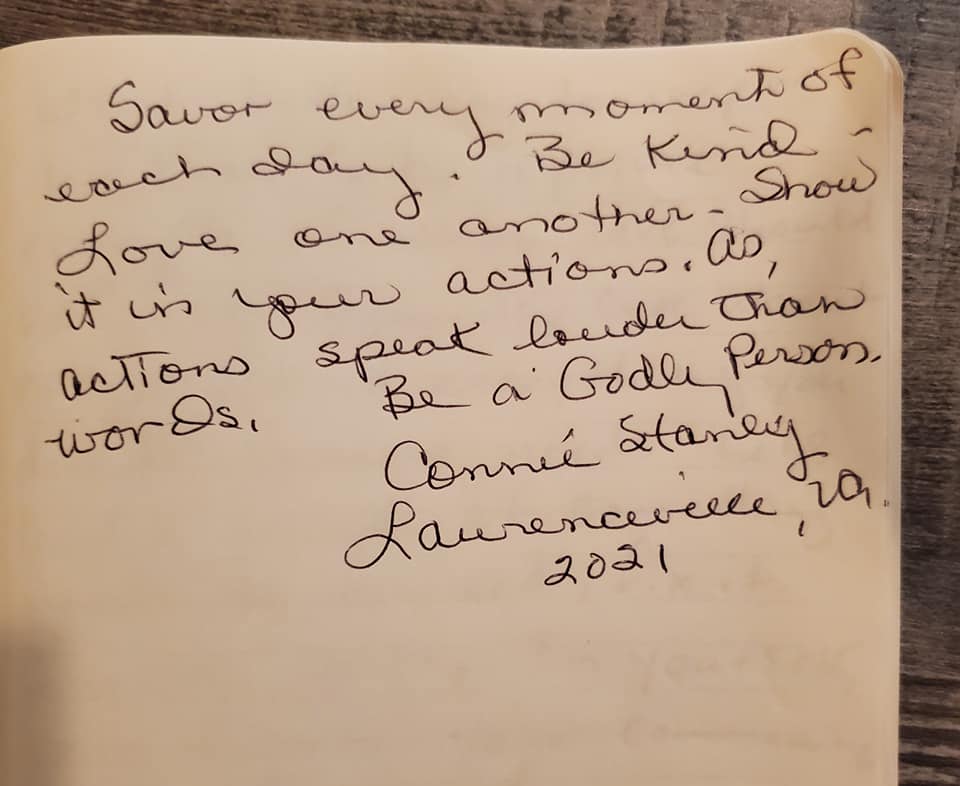 Savor every moment of
each day. Be Kind -
Love one another - Show
it in your actions. As,
actions speak louder than
words. Be a Godly Person.
Connie Stanley
Laurenceville, Va.
2021